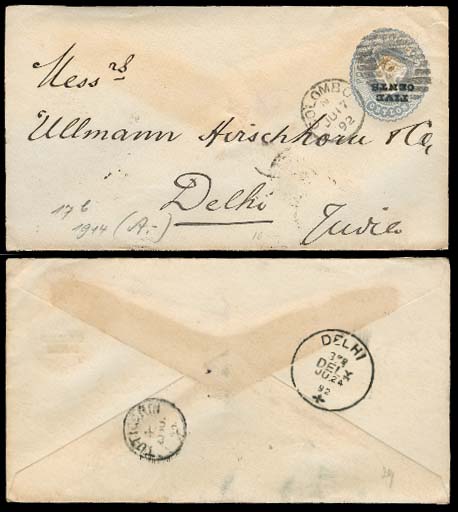 Mess rs
Ullmann Hirschhorn & Co,
Delhi
India
FIVE
CENTS
COLOMBO
JU 17
92
17 b
1914 (A.-)
DELHI
DEL
JU 24
92
TUTICORIN